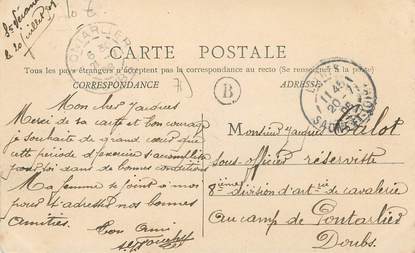 le 20 juillet
PONTARLIER
CARTE POSTALE
Tous les pays étrangers n'acceptent pas la correspondance au recto (Se renseigner à la poste)
CORRESPONDANCE
ADRESSE
B
11 45
20 -7
06
Mon cher Jacques
Merci de ta carte et bon courage
je souhaite de grand cœur que
cette période d'exercice s'accomplisse
pour toi dans de bonnes conditions
Ma femme se joint à moi
pour t'adresser nos bonnes
amitiés.
Ton Ami
Monsieur Jacques
sous-officier réserviste
8ième division d'art-rie de cavalerie
au camp de Pontarlier
Doubs.